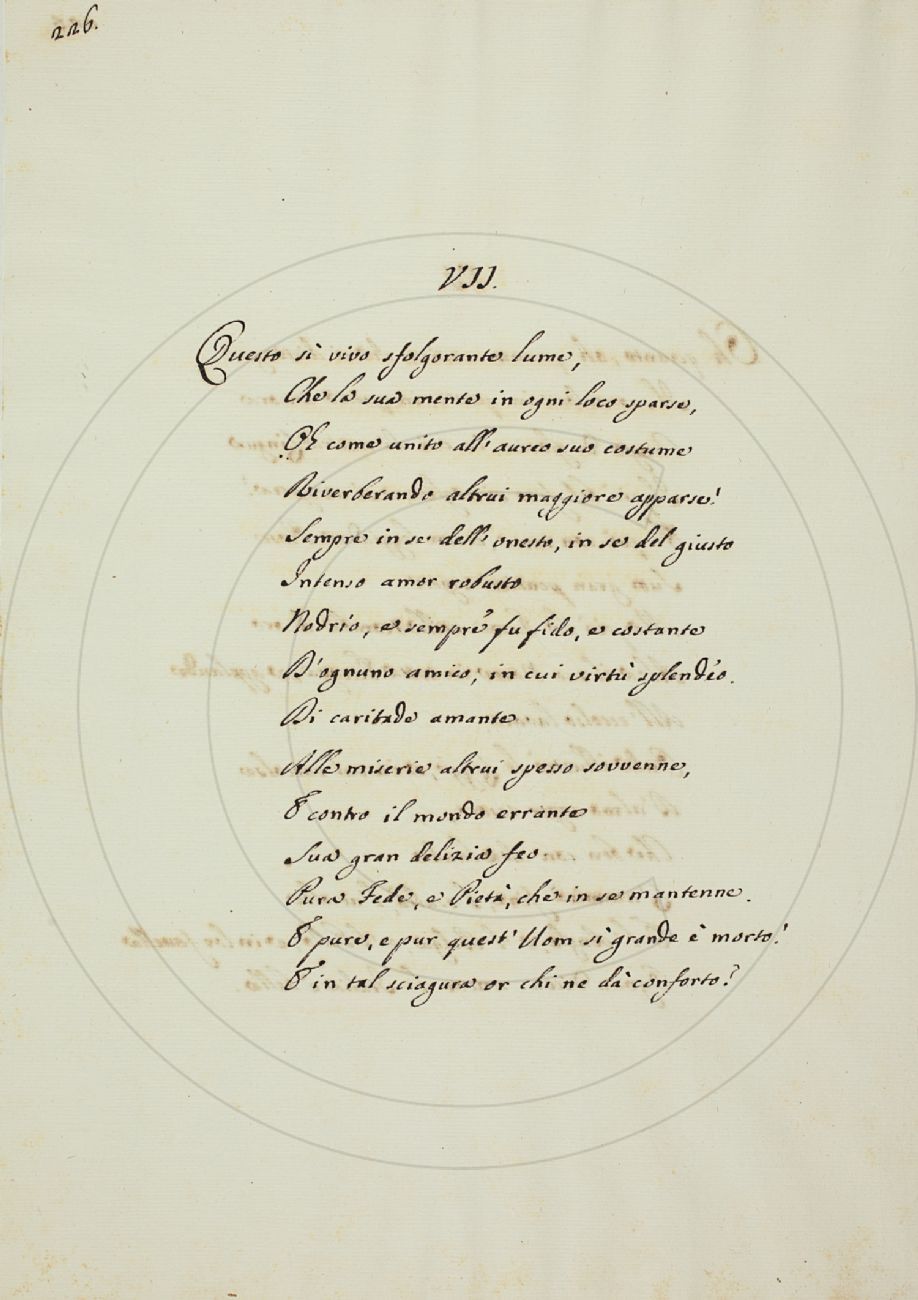 226.
VII.
Questo sì vivo sfolgorante lume,
Che la sua mente in ogni loco sparse,
Oh come unito all'aureo suo costume
Riverberando altrui maggiore apparse!
Sempre in se dell'onesto, in se del giusto
Intenso amor robusto
Nodrío, e sempre fu fido, e costante
D'ognuno amico; in cui virtù splendéo.
Di caritade amante
Alle miserie altrui spesso sovvenne,
E contro il mondo errante
Sua gran delizia feo
Pura Fede, e Pietà, che in se mantenne.
E pure, e pur quest'Uom sì grande è morto!
E in tal sciagura or chi ne dà conforto?